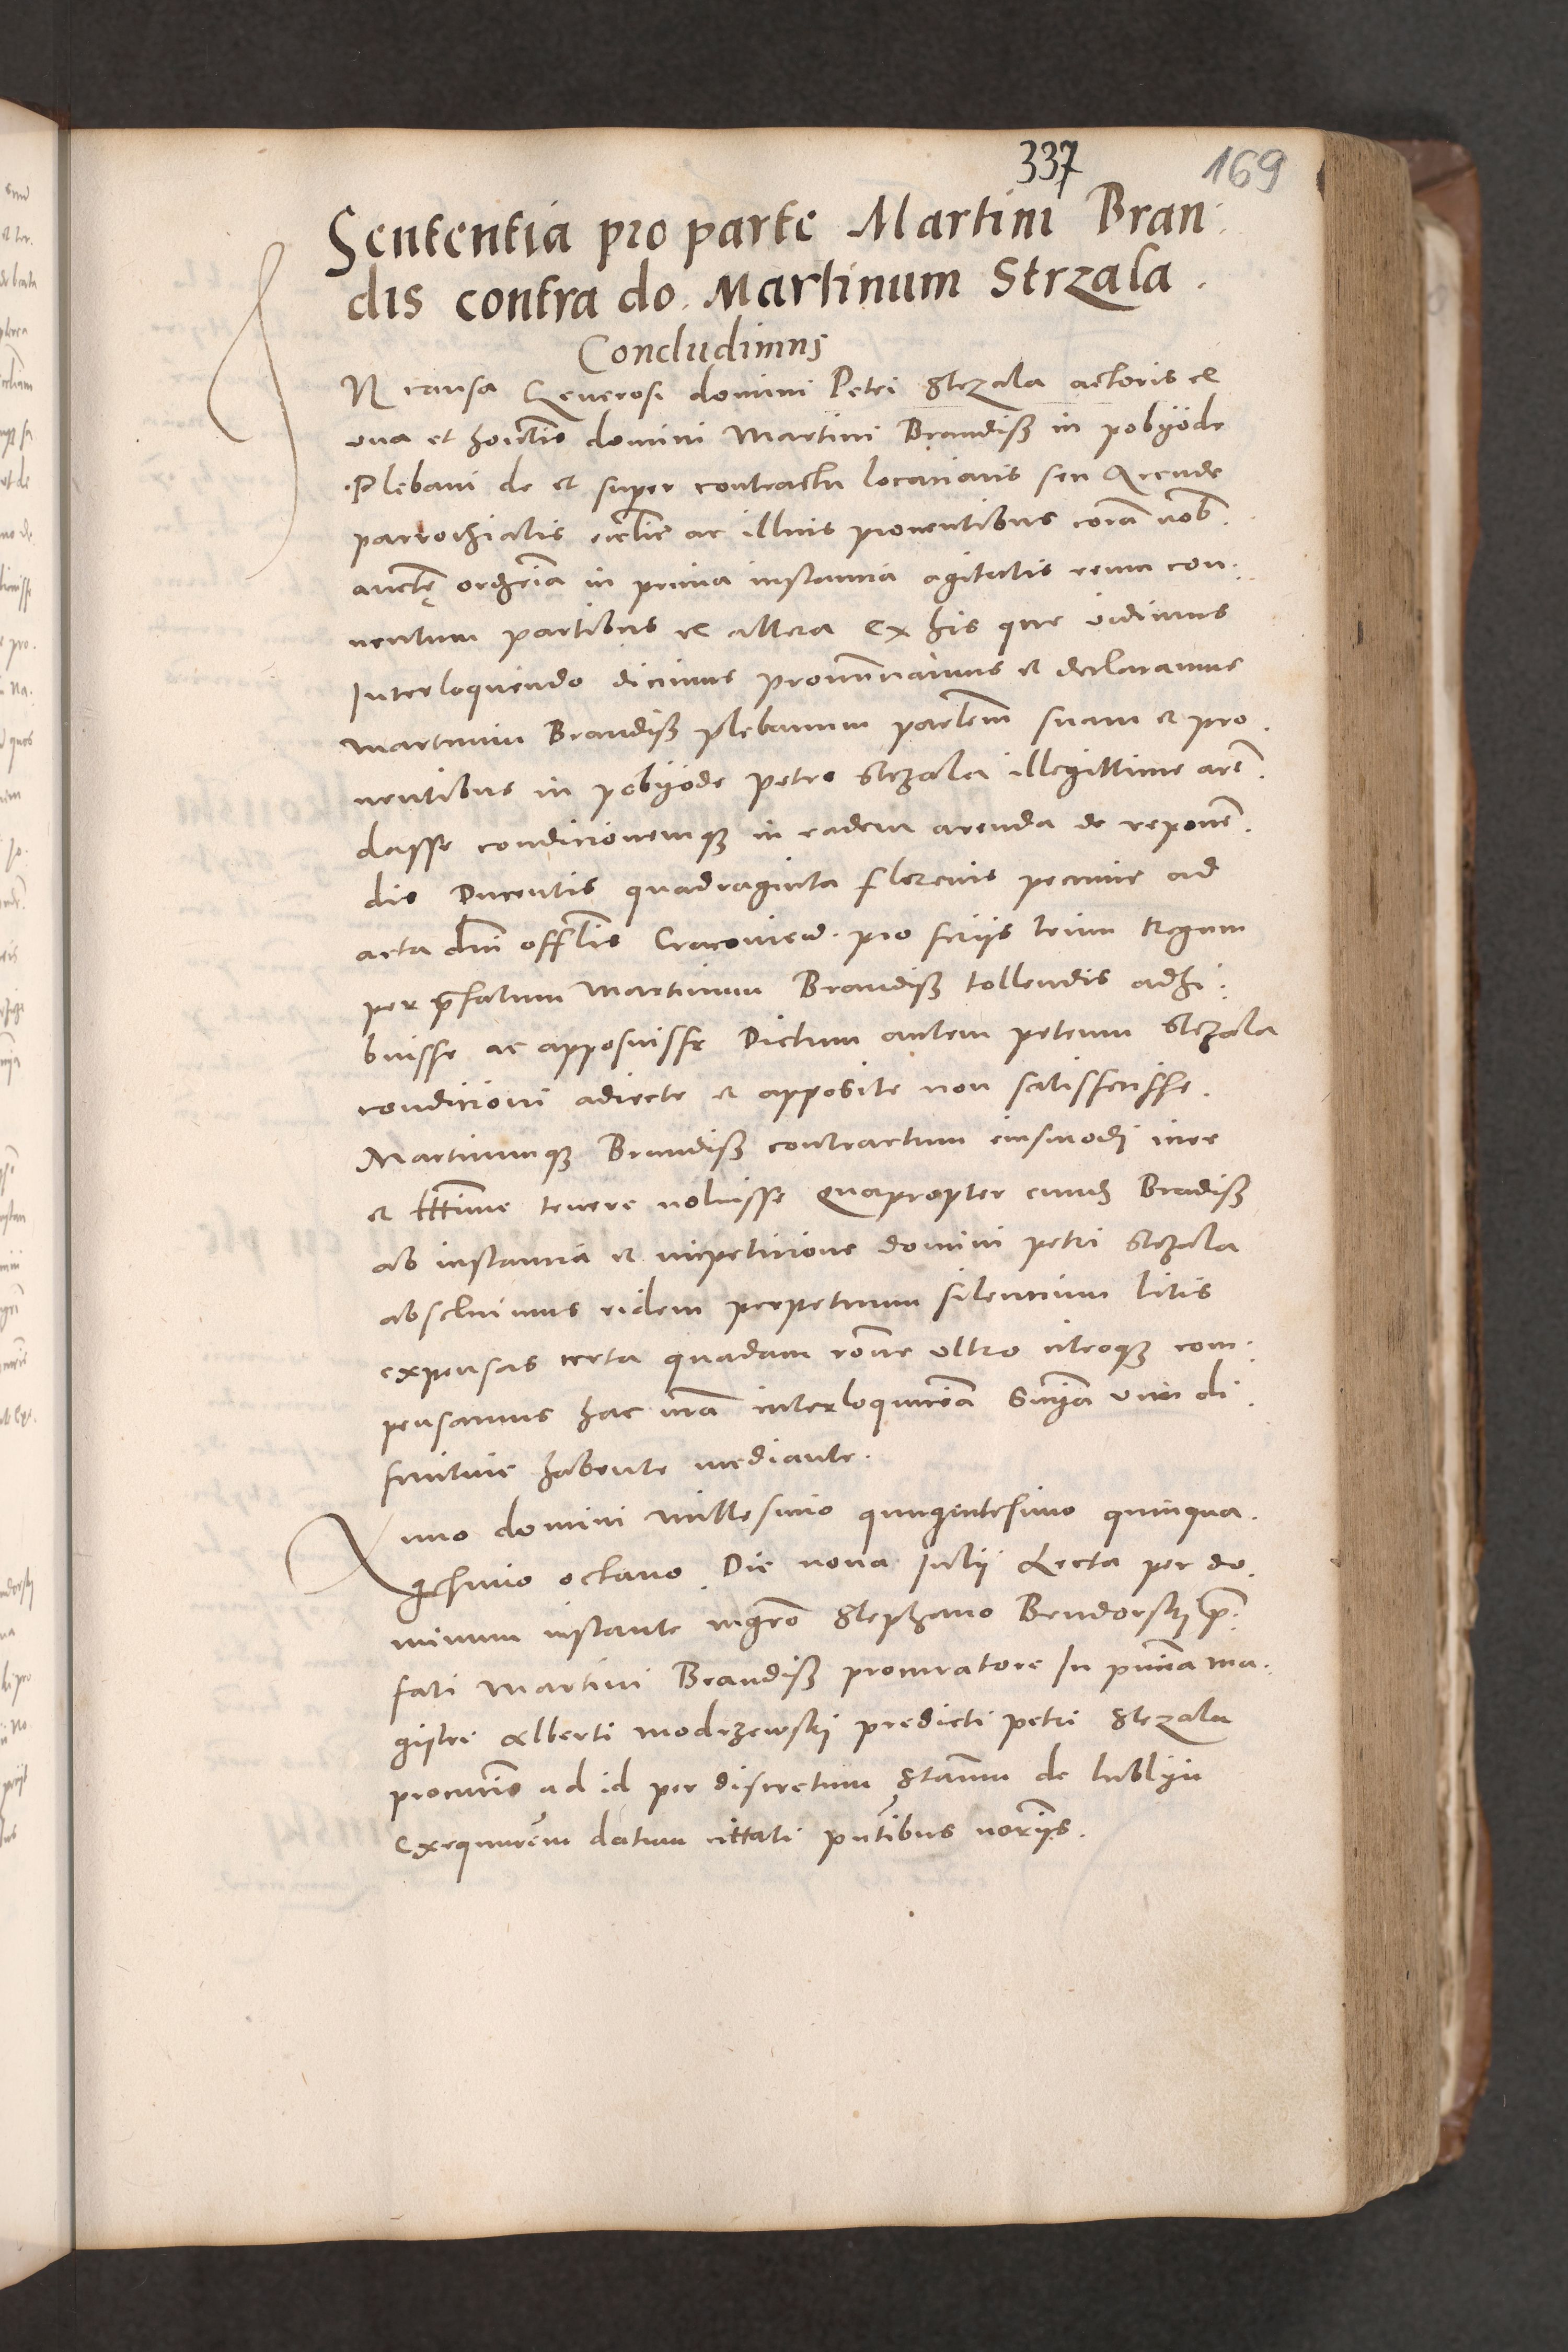 337
169
Sententia pro parte Martini Bran
dis contra do. Martinum Strzala.
Concludimus
IN causa Generosi domini Petri Strzala actoris ex
una et honlis domini Martini Brandiss in pobyode
Plebani de et super contractu locationis seu Arende
parrochialis ecclie ac illius proventibus coram nob.
aucte ordria in prima instantia agitatis rerum con
nentum partibus ex altera Ex his que vidimus
Interloquendo dicimus pronunctiamus et declaramus
martinum Brandiss plebanum parlem suam et pro
ventibus in pobyode petro strzala illegittime aren
dasse condicionemque in eadem arenda de reponen
dis Ducentis quadraginta florenis pecunie ad
acta dni offlis Cracovien. pro ferijs trium Regum
per prefatum Martinum Brandiss tollendis adhi
buisse ac apposuisse Dictum autem petrum strzala
condicioni adiecte et apposite non satisfecisse.
Martinumque Brandiss contractum eiusmodi iure
et lttime tenere noluisse Quapropter eund Bradiss
ab instantia et impeticione domini petri strzala
absoluimus eidem perpetuum silencium litis
expensas certa quadam rone ultro citroque com
pensamus hac nra interloqutria Snia vim di
finitive habente mediante.
Anno domini millesimo quingentesimo quinqua
gesimo octavo Die nona Julij Lecta per do
minum instante mgro Stephano Bendorskj pre
fati Martini Brandiss procuratore In pntia ma
gistri Alberti modrzewskj predicti petri Strzala
procuris ad id per discretum Stanum de lublyn
Exequutem datum cittati pntibus norijs.